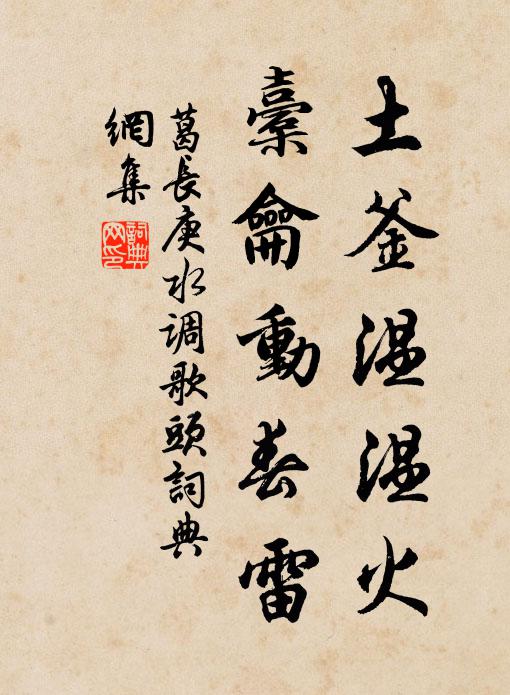 土釜温温火
橐龠動春雷
葛長庚水调歌頭詞典
網集
詞典
网印